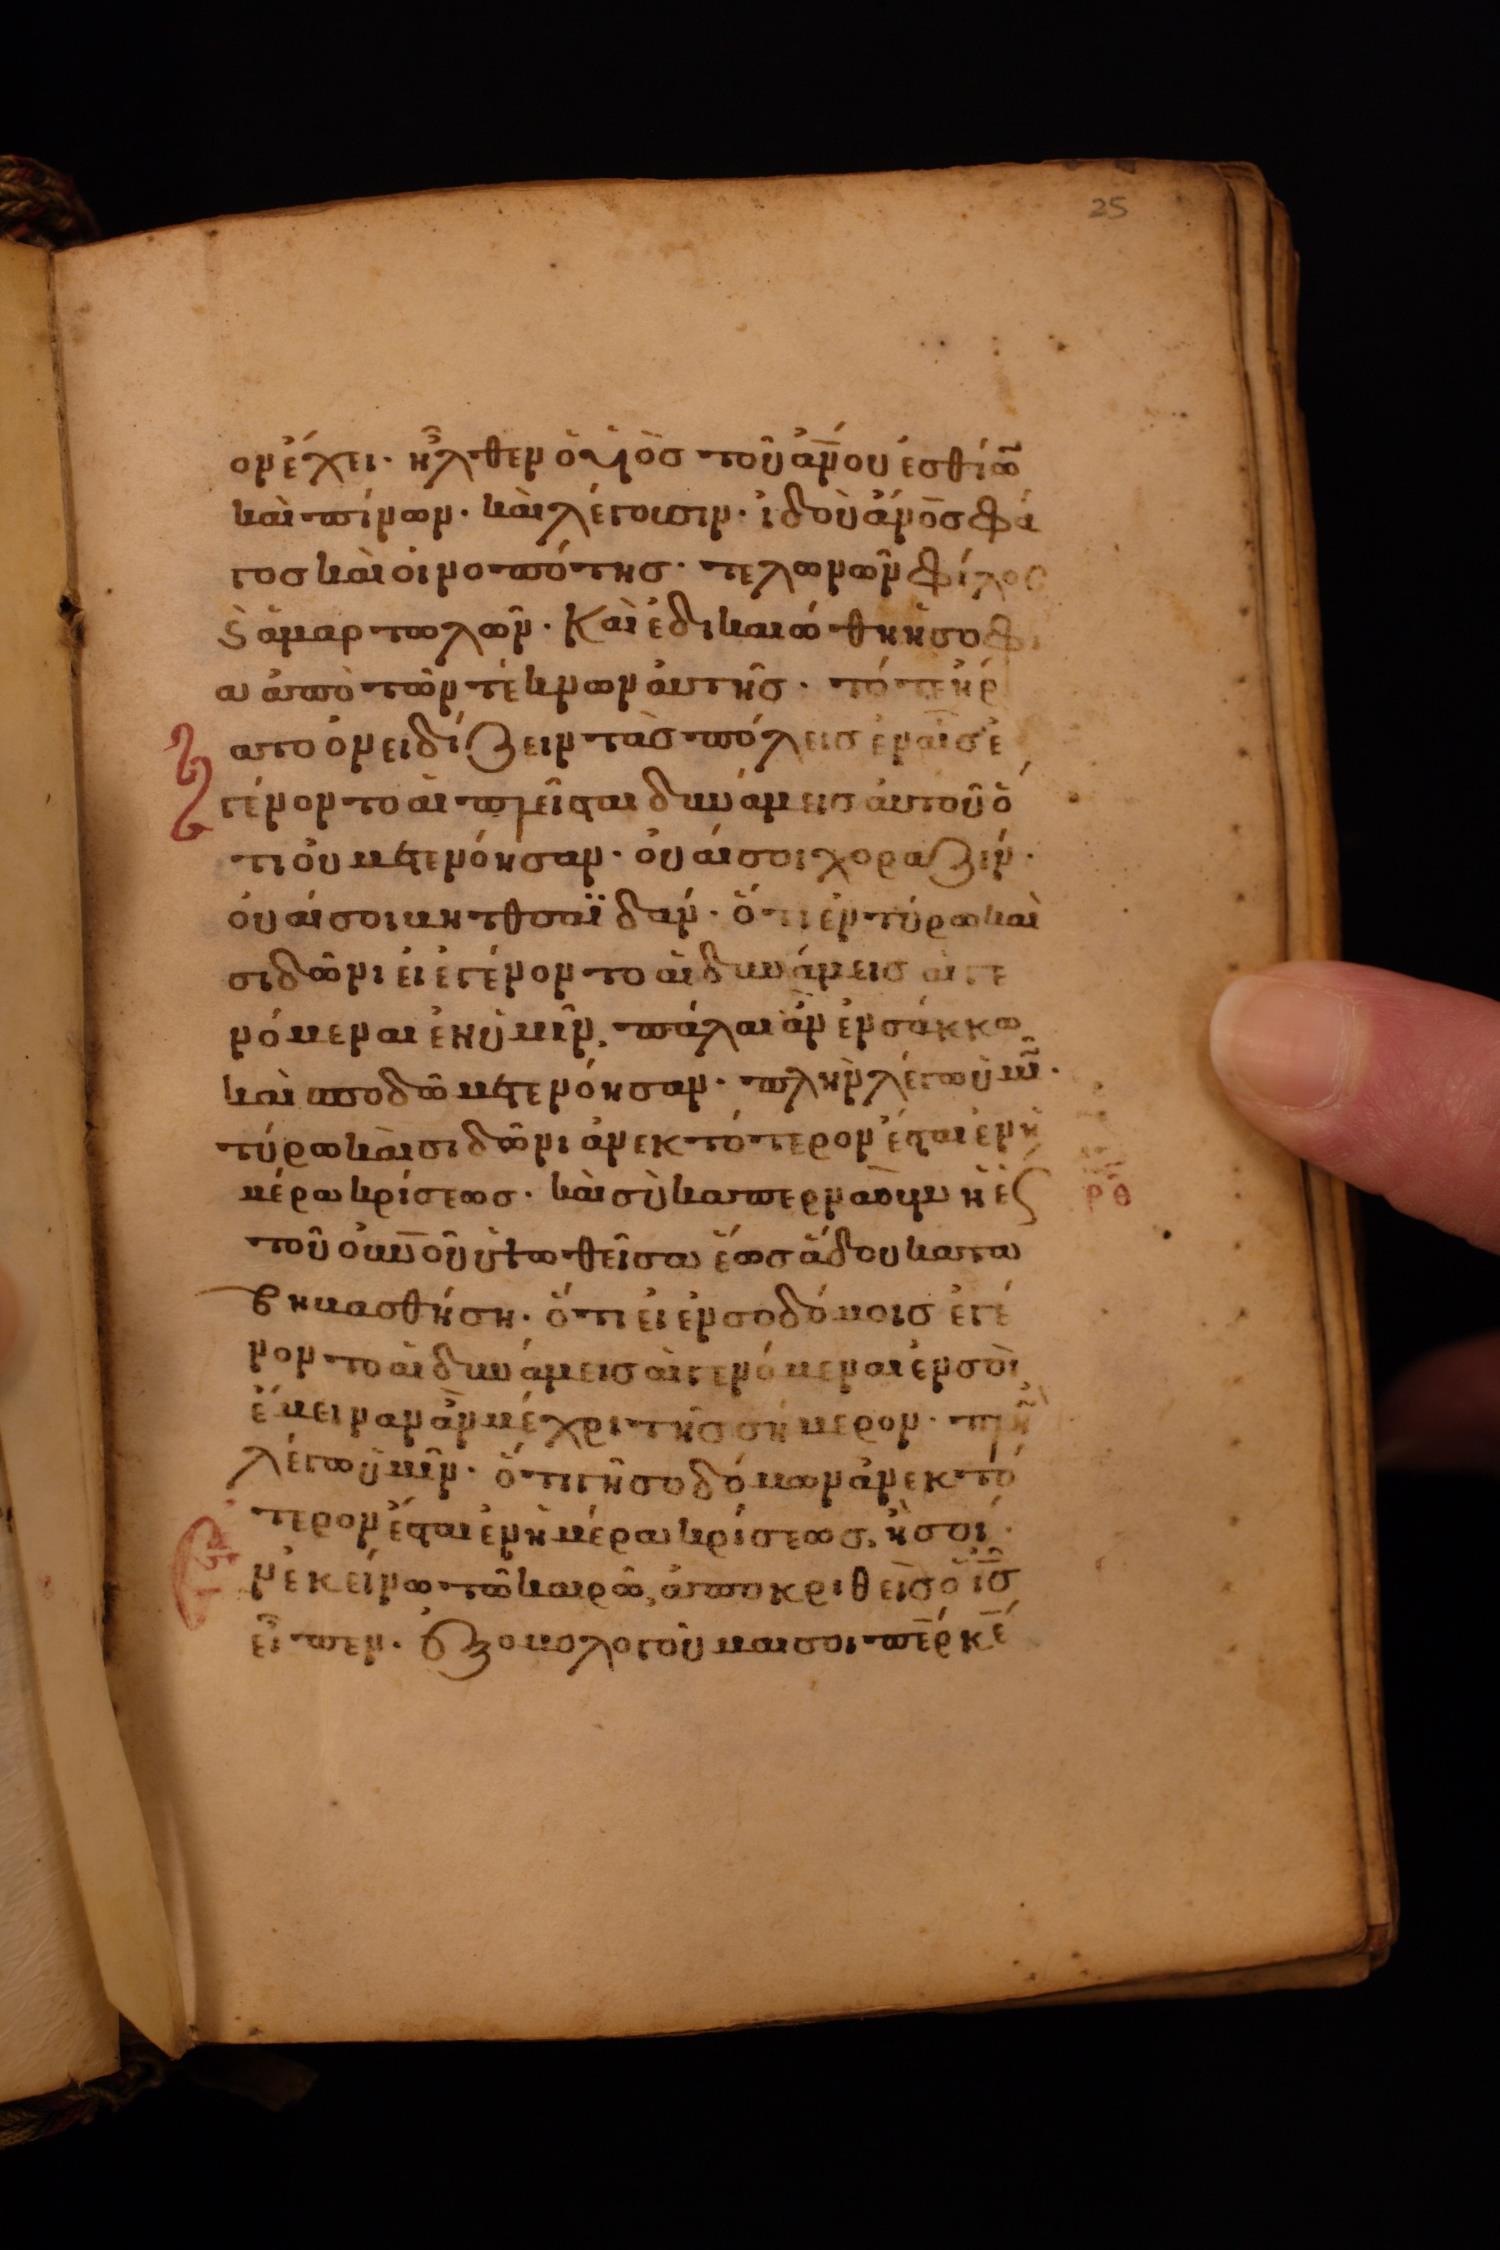 25
ονἔχει· ἦλθεν ὁ υἱὸς τοῦ ἀν̅ου ἐσθίω̅
καὶ πίνων· καὶ λέγουσιν· ἰδοὺ ἄνο̅σ φά
γοσ καὶ οἰνοπότησ· τελωνῶν φίλοσ
ϗ ἁμαρτωλῶν· Καὶ ἐδικαιώθη ἡ σοφί
α ἀπὸ τῶν τέκνων αὐτῆσ· τότε ἤρ
ατο ὀνειδίζειν τὰσ πόλεισ ἐν αἷσ ἐ
γένοντο αἱ πλεῖσται δυνάμεισ αὐτοῦ ὅ
τι οὐ μετενόησαν· οὐαί σοι χοραζίν·
οὐαί σοι βηθσαϊδάν· ὅτι ἐν τύρω καὶ
σιδῶνι εἰ ἐγένοντο αἱ δυνάμεισ αἱ γε
νόμεναι ἐν ὑμῖν, πάλαι ἂν ἐν σάκκω
καὶ σποδῶ μετενόησαν· πλὴν λέγω ὑμῖ̅·
τύρω καὶ σιδῶνι ἀνεκτότερον ἔσται ἐν ἡ
μέρα κρίσεωσ· καὶ σὺ καπερναοὺμ ἡ ἕωσ
τοῦ οὐν̅οῦ ὑψωθεῖσα ἕωσ ἅδου κατα
βηβασθήση· ὅτι εἰ ἐν σοδόμοισ ἐγέ
νοντο αἱ δυνάμεισ αἱ γενόμεναι ἐν σοὶ,
ἔμειναν ἂν μέχρι τῆσ σήμερον· πλὴν
λέγω ὑμῖν· ὅτι γῆ σοδόμων ἀνεκτό
τερον ἔσται ἐν ἡμέρα κρίσεωσ, ἢ σοί·
ν ἐκείνω τῶ καιρῶ, ἀποκριθεὶσ ὁ ι̅σ
εἶπεν· ἐξομολογοῦμαι σοι πε̅ρ κε̅
ρθ